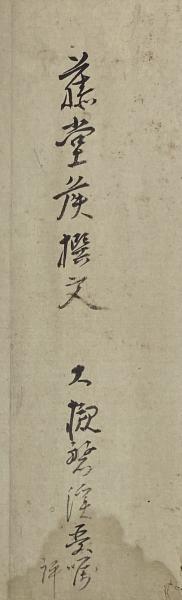 藤堂侯撰文　大槻磐溪　嘱
評